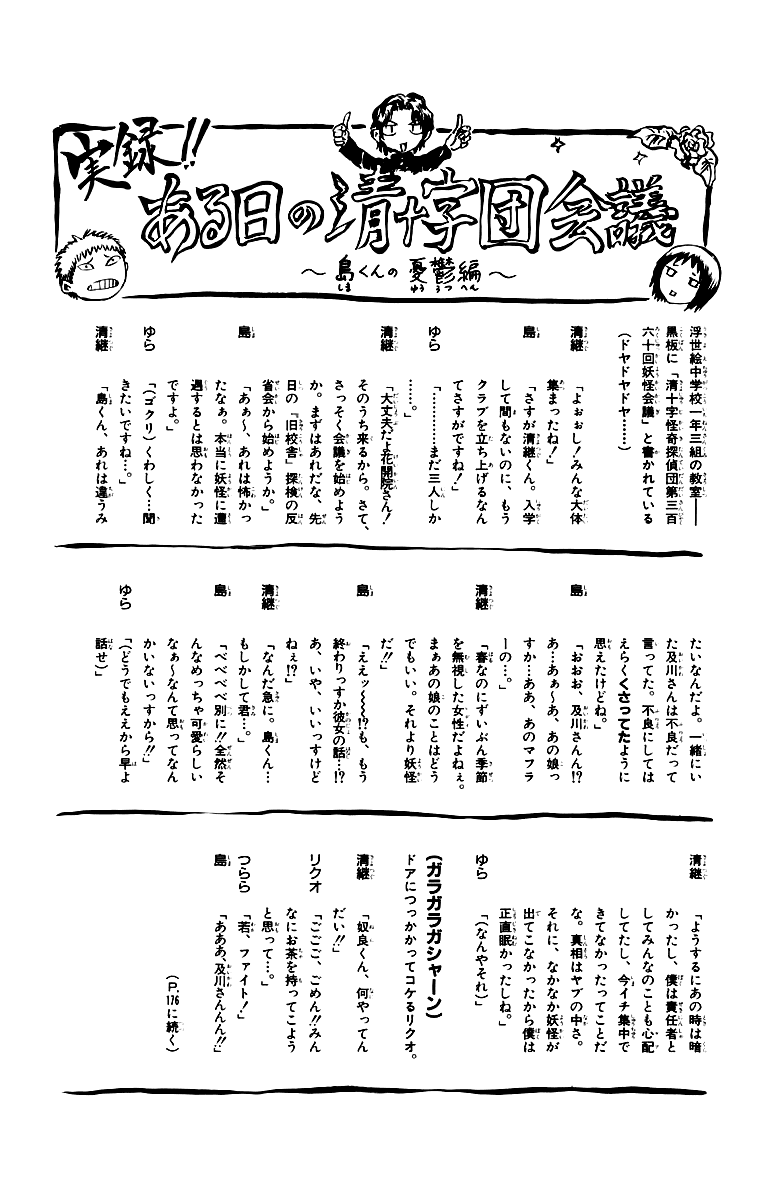 実録!!
ある日の清十字団会議
〜島くんの憂鬱編〜
浮世絵中学校一年三組の教室――
黒板に「清十字怪奇探偵団第三百
六十回妖怪会議」と書かれている
(ドヤドヤドヤ……)
清継「よぉおし!みんな大体
集まったね!」
島「さすが清継くん。入学
して間もないのに、もう
クラブを立ち上げるなん
てさすがですね!」
ゆら「…………まだ三人しか
……。」
清継「大丈夫だよ花開院さん!
そのうち来るから。さて、
さっそく会議を始めよう
か。まずはあれだな、先
日の『旧校舎』探検の反
省会から始めようか。」
島「あぁ〜、あれは怖かっ
たなぁ。本当に妖怪に遭
遇するとは思わなかった
ですよ。」
ゆら「(ゴクリ)くわしく…聞
きたいですね…。」
清継「島くん、あれは違うみ
たいなんだよ。一緒にい
た及川さんは不良だって
言ってた。不良にしては
えらくくさってたように
思えたけどね。」
島「おおお、及川さんん!?
あ…あぁ〜あ、あの娘っ
すか…ああ、あのマフラ
ーの…。」
清継「春なのにずいぶん季節
を無視した女性だよねぇ。
まぁあの娘のことはどう
でもいい。それより妖怪
だ!!」
島「ええッ〜〜!?も、もう
終わりっすか彼女の話…!?
あ、いや、いいっすけど
ねぇ!?」
清継「なんだ急に。島くん…
もしかして君…。」
島「べべべべ別に!!全然そ
んなめっちゃ可愛らしい
なぁ〜なんて思ってなん
かいないっすから!!」
ゆら「(どうでもええから早よ
話せ)」
清継「ようするにあの時は暗
かったし、僕は責任者と
してみんなのことも心配
してたし、今イチ集中で
きてなかったってことだ
な。真相はヤブの中さ。
それに、なかなか妖怪が
出てこなかったから僕は
正直眠かったしね。」
ゆら「(なんやそれ)」
(ガラガラガシャーン)
ドアにつっかかってコケるリクオ。
清継「奴良くん、何やってん
だい!!」
リクオ「ごごご、ごめん!!みん
なにお茶を持ってこよう
と思って…。」
つらら「若、ファイト!」
島「あああ、及川さんんん!!」
(P.176に続く)